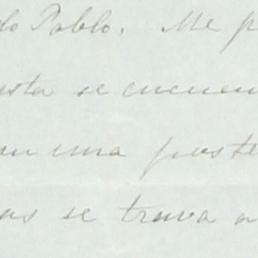 do Pablo, Me p
sta se encuen
on una poste
as se trava a